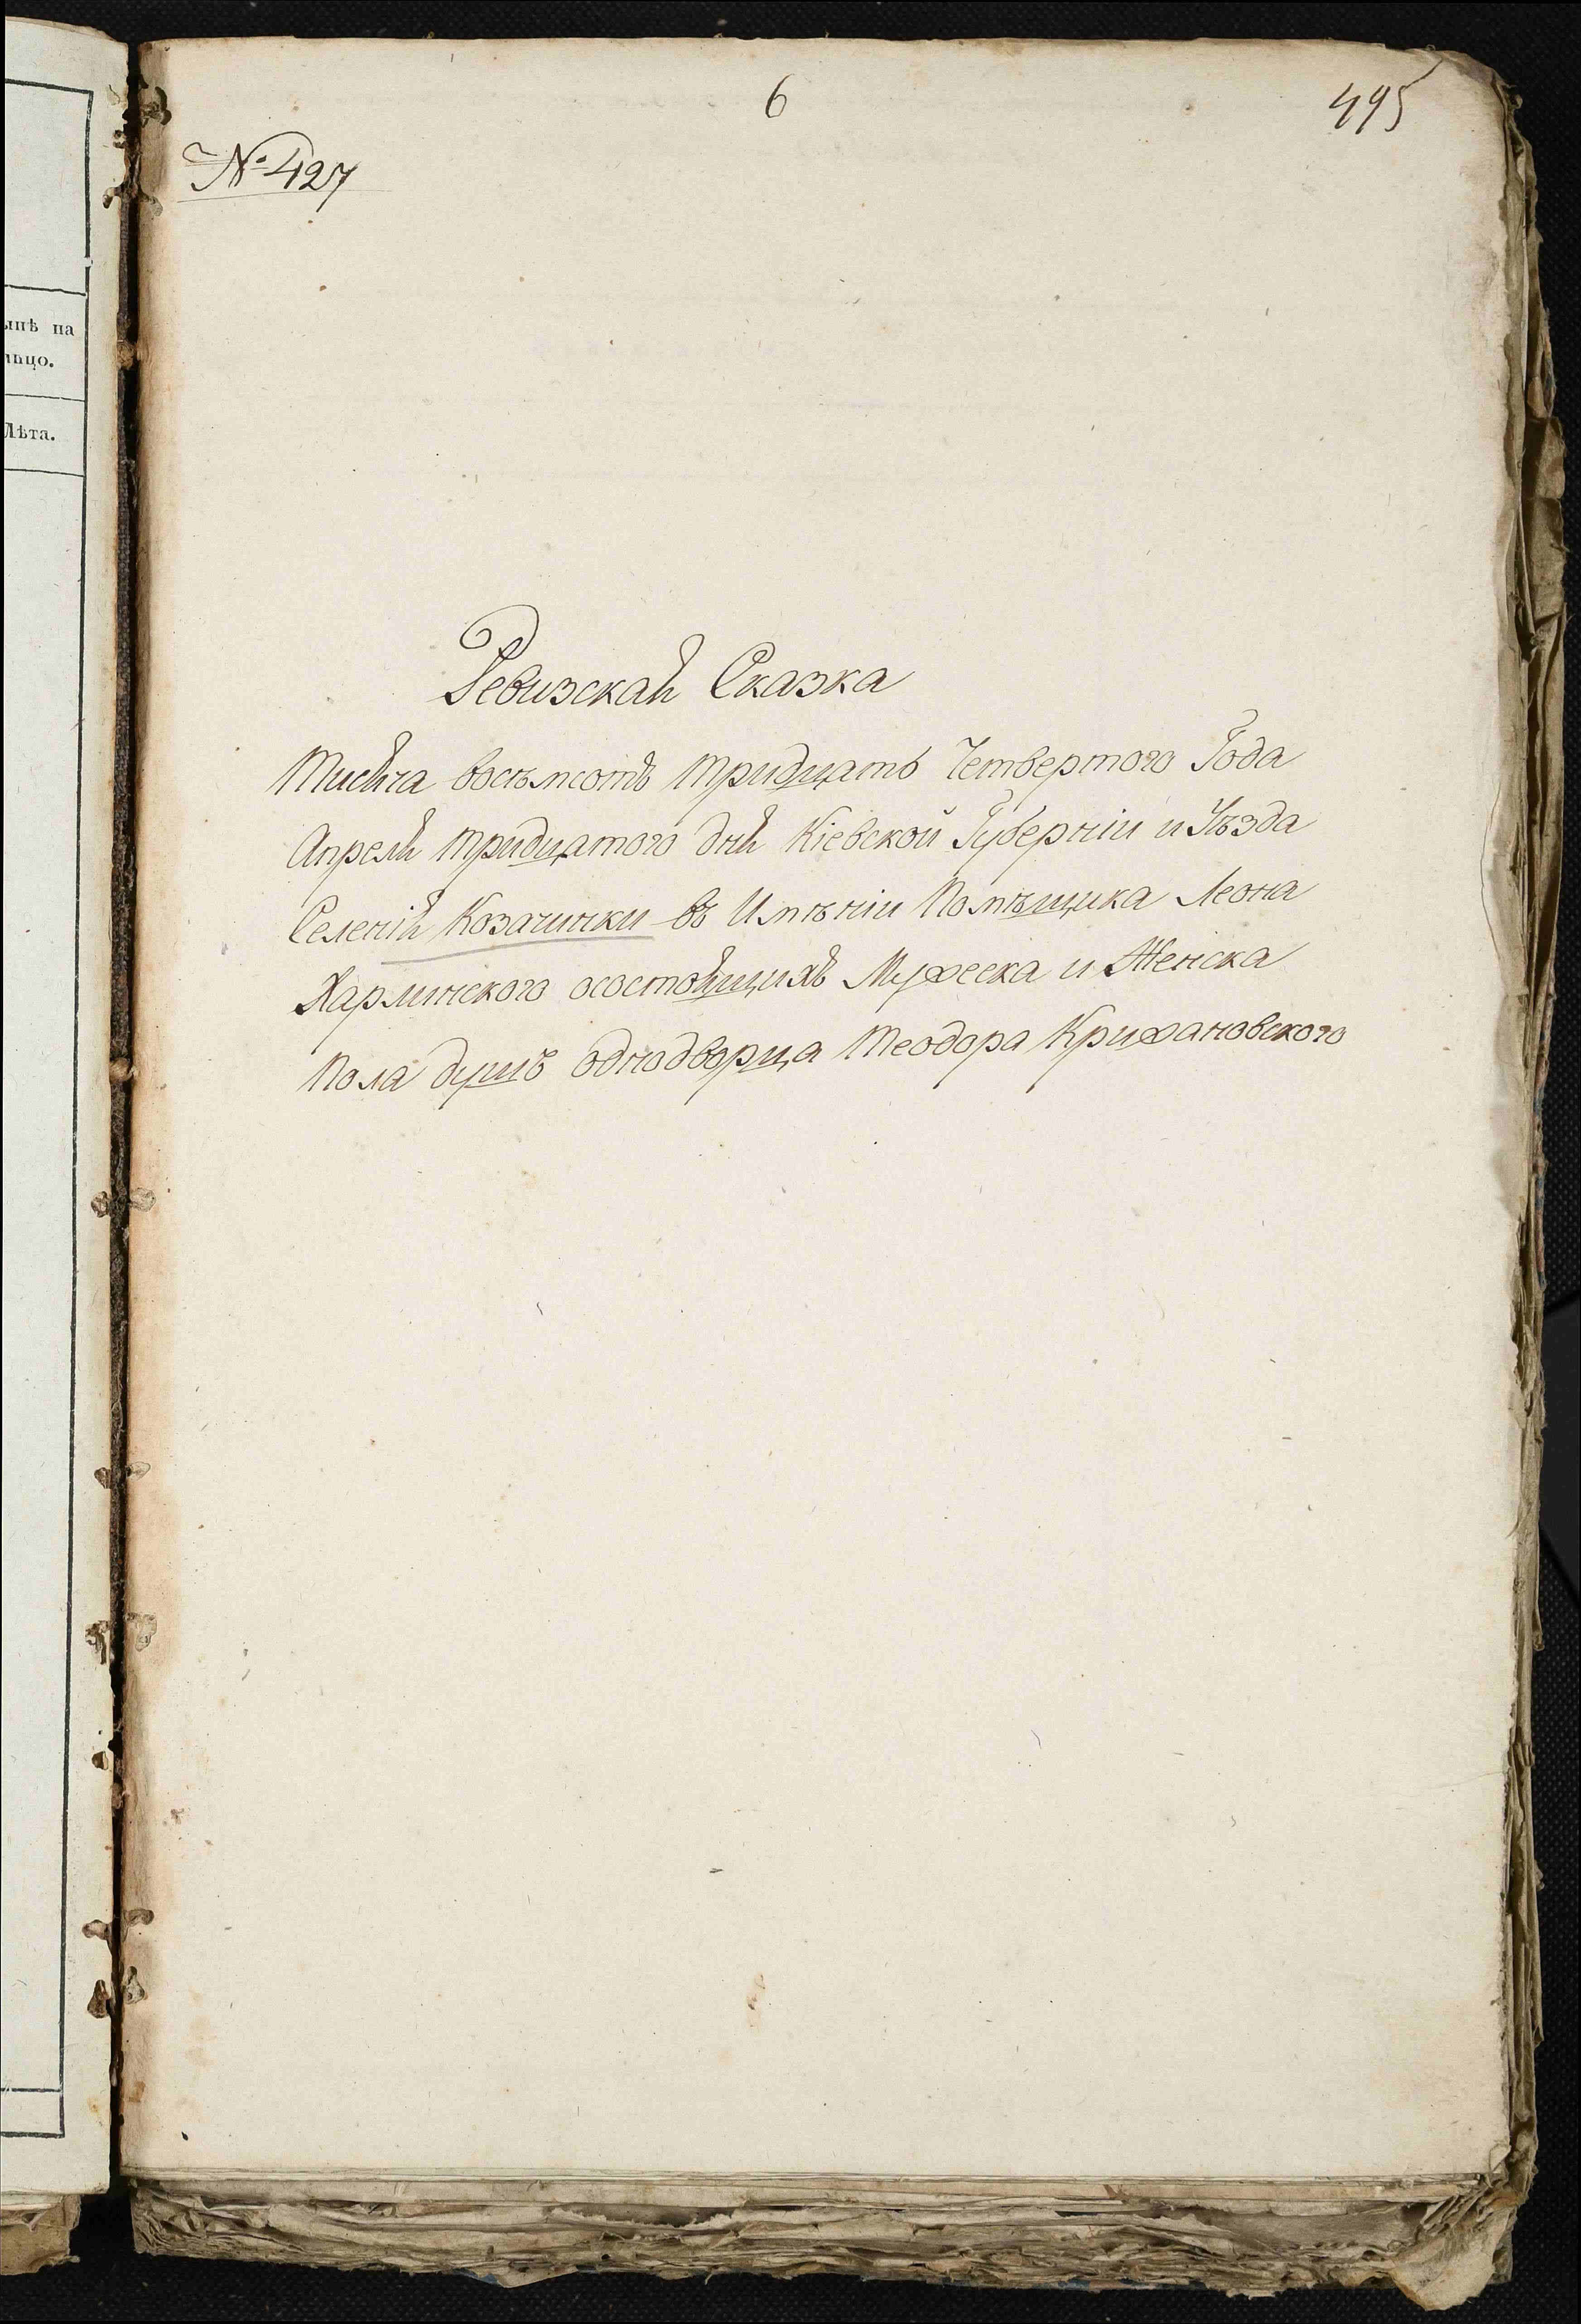 6
495
№ 427
ынѣ на
лицо.
Лѣта.
Ревизская Сказка
Тисяча восѣмсотъ тридцать Четвертого Года
Апреля тридцатого дня Кіевской Губерніи и Уѣзда
Селенія Козачинки въ Имѣніи Помѣщика Леона
Харлинского осостоящихъ Мужеска и Женска
Пола душъ однодворца Теодора Крижановского